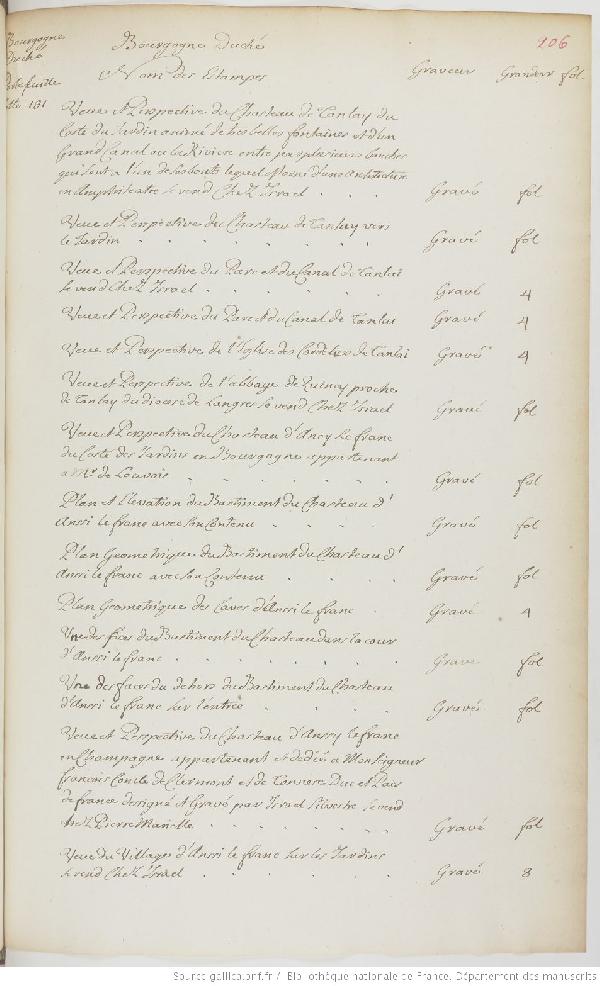 Bourgogne
Duché
Portefeuille
191
Bourgogne Duché
206
Nom des Estampes
Graveur Grandeur fol
Veue et Perspective du Chasteau de Tanlay du
Costé du Jardin animé de ses belles fontaines et d'un
Grand Canal ou la Riviere entre par plusieurs bouches
qui sont a l'un de ses bouts lequel Morné d'une Architecture
en Amphiteatre se vend Chez Israel Gravé fol
Veue et Perspective du Chasteau de Tanlay vers
le Jardin Gravé fol
Veue et Perspective du Parc et du Canal de Tanlai
se vend Chez Israel Gravé 4
Veue et Perspective du Parc et du Canal de Tanlai Gravé 4
Veue et Perspective de l'Eglise des Cordeliers de Tanlai Gravé 4
Veue et Perspective de l'abbaye de Quincy proche
de Tanlay du diocese de Langres se vend Chez Israel Gravé fol
Veue et Perspective du Chasteau d'Ancy le franc
du Costé des Jardins en Bourgogne appartenant
a Mr de Louvois Gravé fol
Plan et Elevation du Bastiment du Chasteau d'
Ansri le franc avec son Contenu Gravé fol
Plan Geometrique du Bastiment du Chasteau d'
Ansri le franc avec son Contenu Gravé fol
Plan Geometrique des Caves d'Ansri le franc Gravé 4
Une des faces du Bastiment du Chasteau dans la cour
d'Ansri le franc Gravé fol
Une des faces du dehors du Bastiment du Chasteau
d'Ansri le franc sur l'entrée Gravé fol
Veue et Perspective du Chasteau d'Ansry le franc
en Champagne appartenant et dédié a Monseigneur
francois Comte de Clermont et de Tonnere Duc et Pair
de france designé et Gravé par Israel Silvestre se vend
chez Pierre Mariette Gravé fol
Veue du Village d'Ansri le franc sur les Jardins
se vend Chez Israel Gravé 8
Source gallica.bnf.fr / Bibliothèque nationale de France. Département des manuscrits